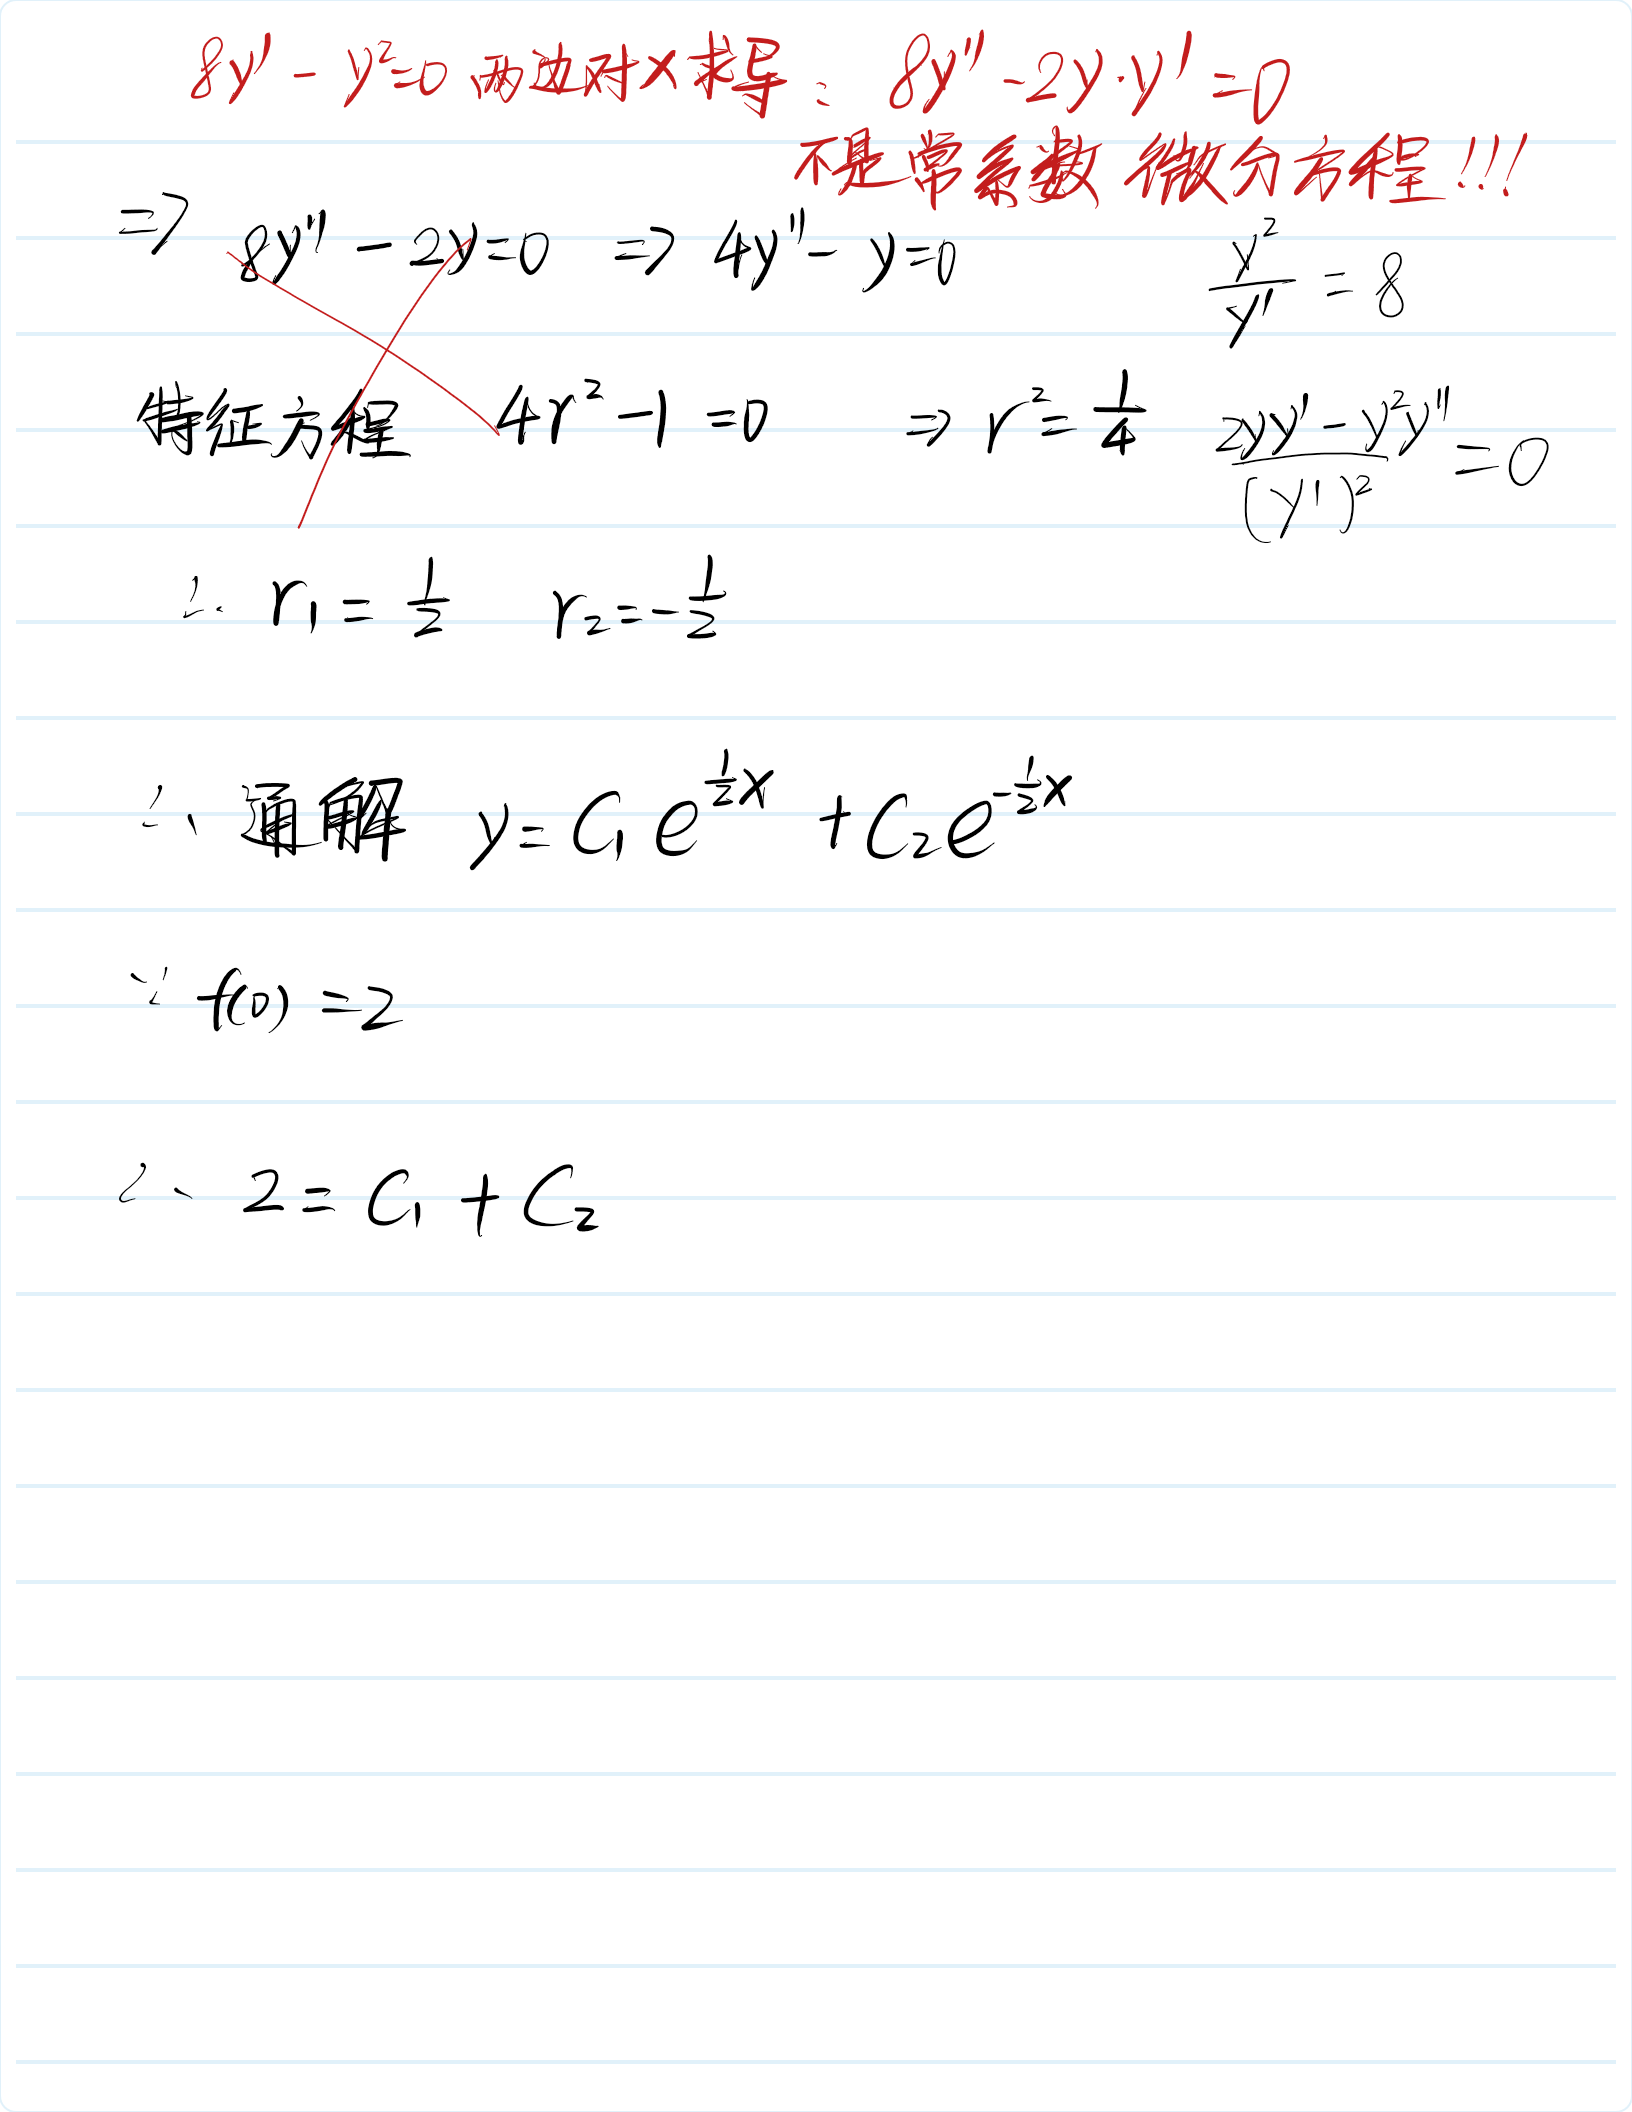 8y' - y²=0 两边对x求导: 8y'' - 2y·y' = 0
不是常系数 微分方程!!!
=> 8y'' - 2y=0 => 4y'' - y=0
y²/y' = 8
特征方程 4r² - 1 = 0 => r² = 1/4
(2yy' - y²y'')/(y')² = 0
∴ r₁ = 1/2 r₂ = -1/2
∴ 通解 y = C₁e^(1/2 x) + C₂e^(-1/2 x)
∵ f(0) = 2
∴ 2 = C₁ + C₂